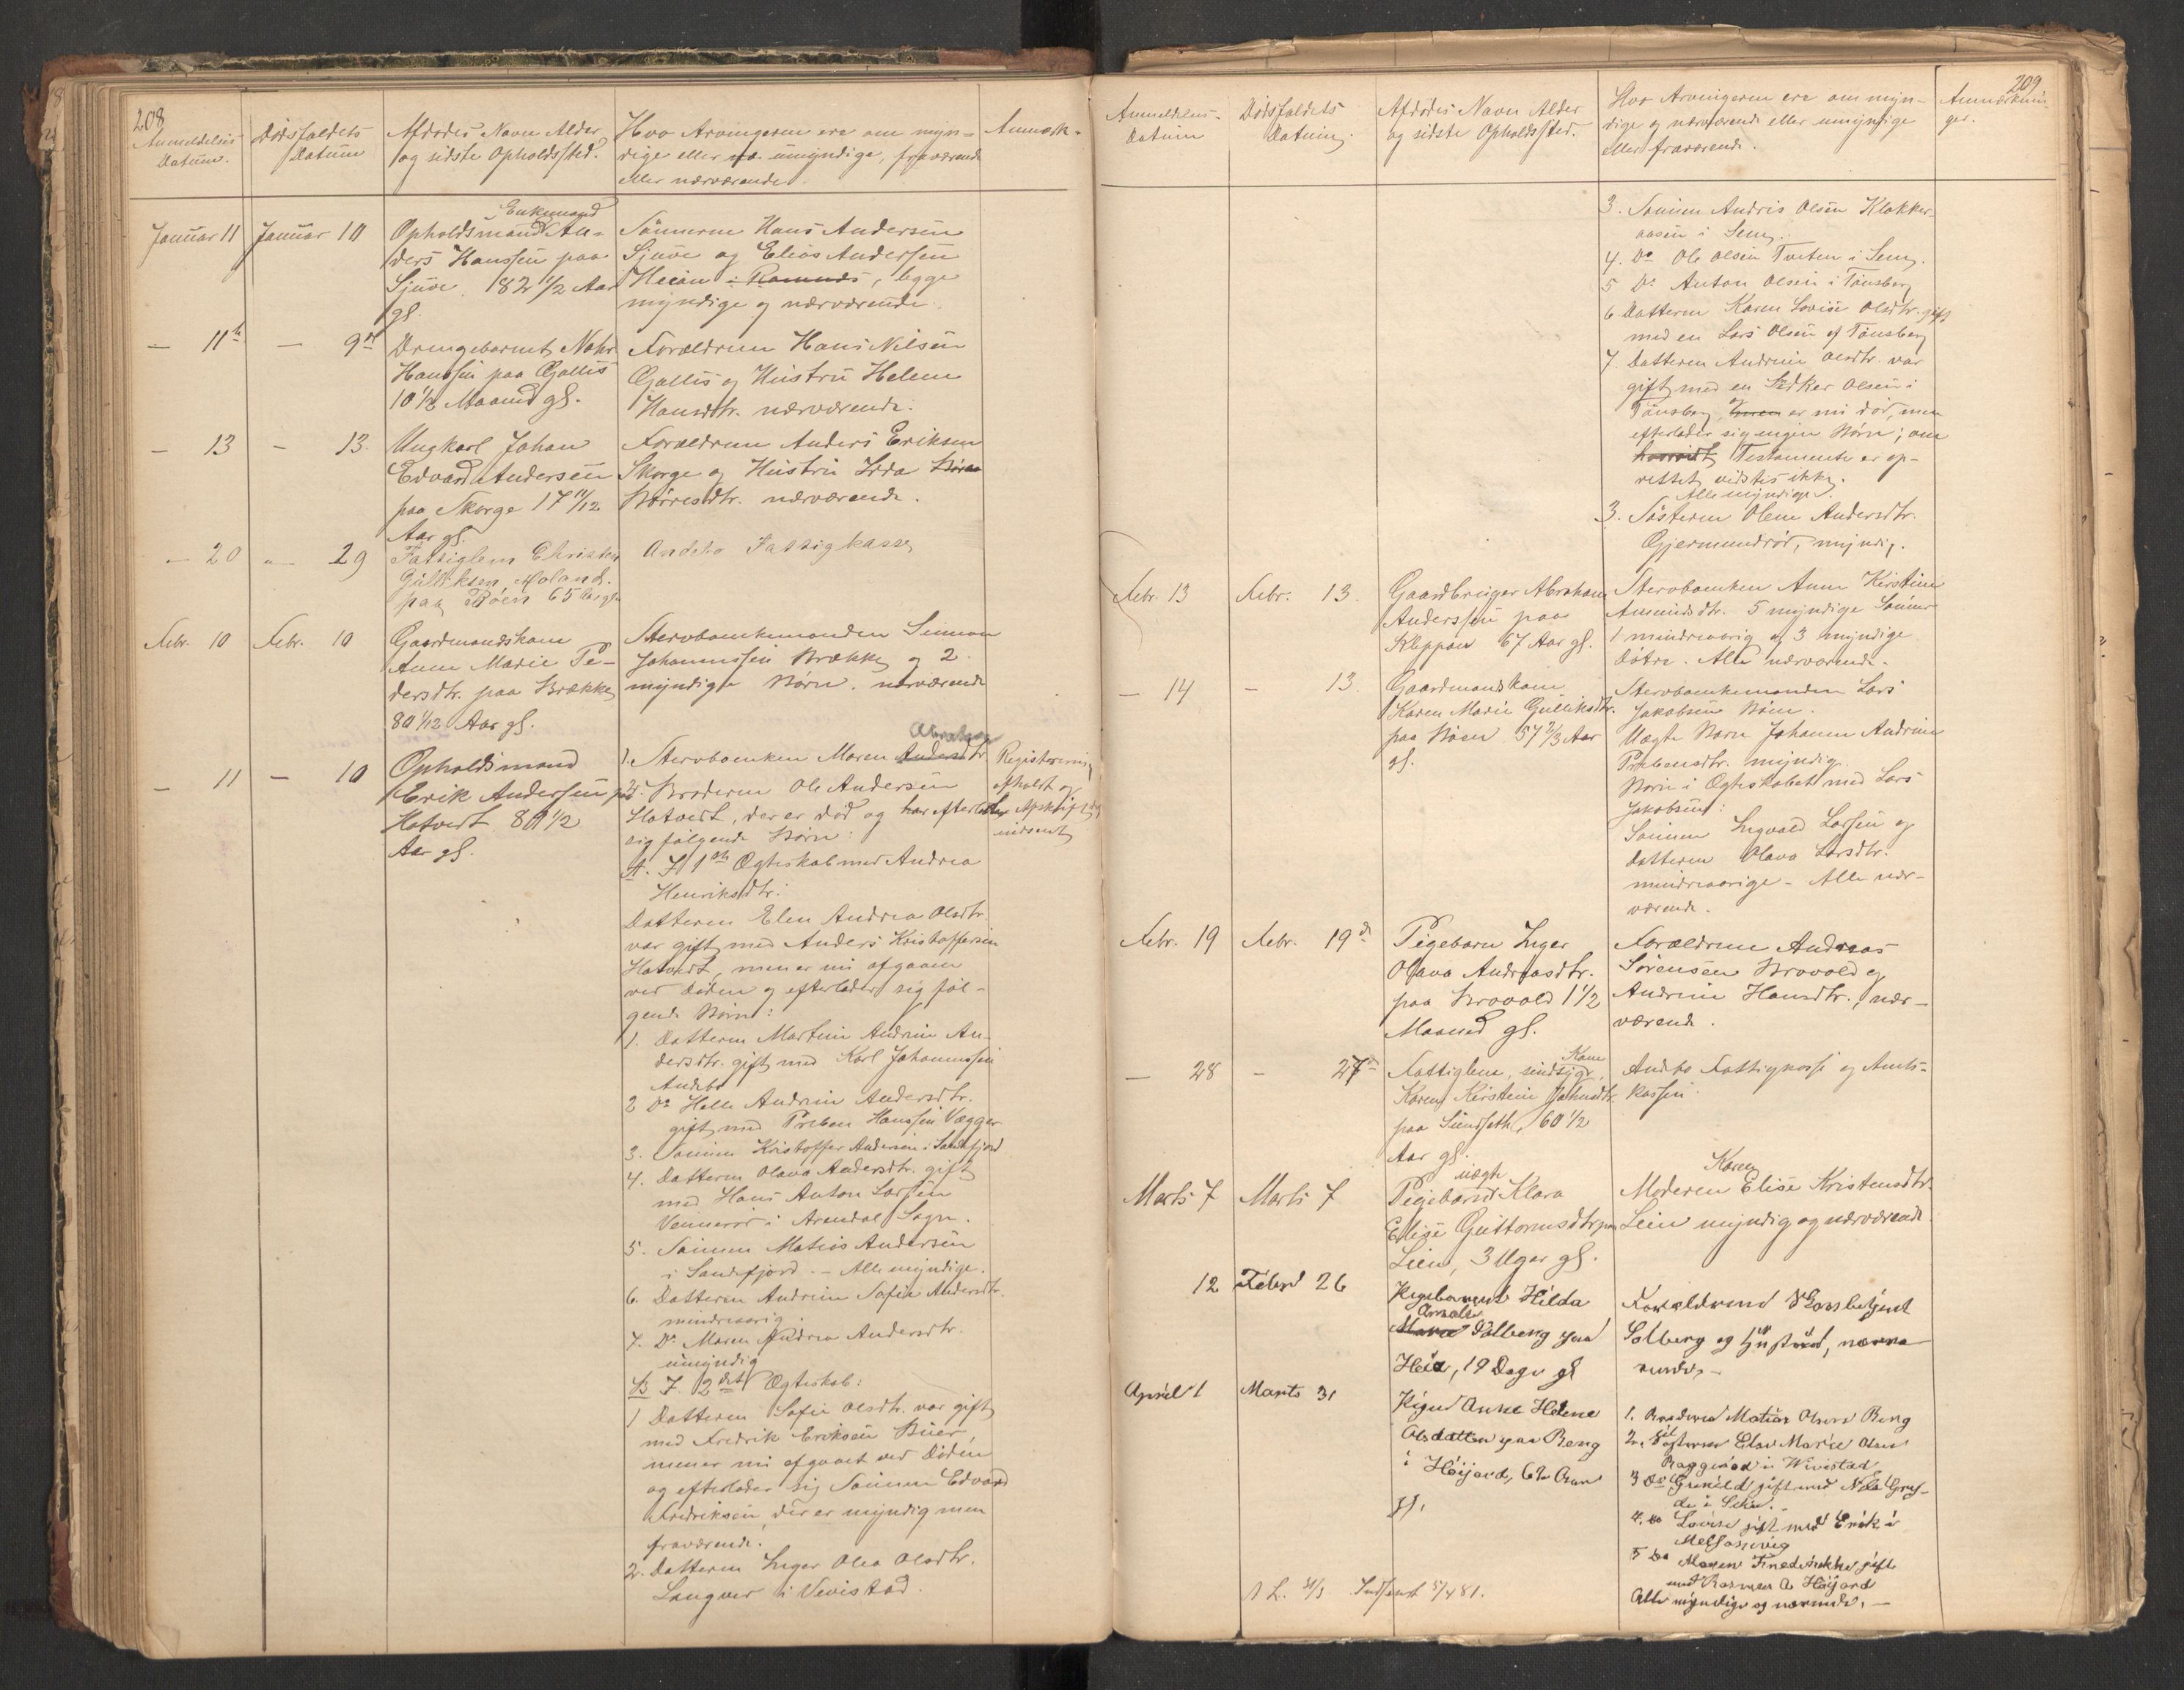 208
Anmeldelses
Datum.
Dødsfaldets
Datum
Afdødes Navn Alder
og sidste Opholdssted.
Hvo Arvingerne ere om myn-
dige eller umyndige, fraværende
eller nærværende.
Anmærk-
Januar 11
Januar 10
Enkemand
Opholdsmand An-
ders Hanssen paa
Sjuve 82 1/2 Aar
gl.
Sønnerne Hans Andersen
Sjuve og Elias Andersen
Heian i Ramnes, begge
myndige og nærværende.
— 11te
— 9de
Drengebarnet Nohr
Hanssen paa Gallis
10 1/2 Maaned gl.
Forældrene Hans Nilsen
Gallis og Hustru Helene
Hansdtr. nærværende.
— 13
— 13.
Ungkarl Johan
Edvard Andersen
paa Skorge 17 11/12
Aar gl.
Forældrene Anders Eriksen
Skorge og Hustru Idda
Børresdtr. nærværende.
— 20
— 29
Fattiglem Christen
Gulliksen Moland
paa Böen 65 Aar gl.
Andebo Fattigkasse
Febr. 10
Febr. 10
Gaardmandskone
Anne Marie Pe-
dersdtr. paa Brække
80 1/12 Aar gl.
Stervboenkemanden Simon
Johannessen Brække og 2
myndige Børn. nærværende
— 11
— 10
Opholdsmand
Erik Andersen paa
Hotvedt 80 1/2
Aar gl.
Abrahams
1. Stervboenken Maren Andersdtr.
2. Broderen Ole Andersen
Hotvedt, der er død og har efterladt
sig følgende Børn:
A. I 1ste Ægteskab med Andrea
Henriksdtr:
Datteren Elen Andrea Olsdtr.
var gift med Anders Kristoffersen
Hotvedt, men er nu afgaaen
ved Døden og efterlader sig føl-
gende Børn:
1. Datteren Martine Andrine An-
dersdtr. gift med Karl Johannessen
Andebo
2 Do Helle Andrine Andersdtr.
gift med Preben Hanssen Vegger
3. Sønnen Kristoffer Andersen i Sandefjord
4. Datteren Olava Andersdtr. gift
med Hans Anton Larsen
Venneröd i Arendal Sogn.
5. Sønnen Matias Andersen
i Sandefjord. — Alle myndige.
6. Datteren Andrine Sofie Andersdtr.
mindreaarig.
7. Do Maren Andrea Andersdtr.
umyndig
B I 2det Ægteskab:
1 Datteren Sofie Olsdtr. var gift
med Fredrik Eriksen Buer,
men er nu afgaaet ved Døden
og efterlader sig Sønnen Edvard
Fredriksen, der er myndig men
fraværende.
2. Datteren Inger Olea Olsdtr.
Langver i Vivestad.
Registrering
afholdt og
indsendt
209
Anmeldelses-
Datum
Dødsfaldets
Datum.
Afdødes Navn Alder
og sidste Opholdssted.
Hvo Arvingerne ere om myn-
dige og nærværende eller umyndige
eller fraværende.
Anmærknin-
ger.
3. Sønnen Andris Olsen Klokker-
aasen i Sem.
4. Do Ole Olsen Tveten i Sem.
5 Do Anton Olsen i Tønsberg
6 Datteren Karen Lovise Olsdtr. gift
med en Lars Olsen af Tønsberg
7. Datteren Andrine Olsdtr. var
gift med en Olsen i
Tønsberg, og er nu død, men
efterlader sig ingen Børn; om
Testamente er op-
rettet vidstes ikke.
Alle myndige.
3. Søsteren Olene Andersdtr.
Gjermundrød, myndig.
Febr. 13
Febr. 13.
Gaardbruger Abraham
Anderssen paa
Kleppan 67 Aar gl.
Stervboenken Anne Kirstine
Amundsdtr. 5 myndige Sønner
1 mindreaarig og 3 myndige
Døtre. Alle nærværende.
— 14
— 13.
Gaardmandskone
Karen Marie Gulliksdtr.
paa Böen 57 2/3 Aar
gl.
Stervboenkemanden Lars
Jakobsen Böen.
Uægte Barn Johanne Andrine
Prebensdtr. myndig.
Børn i Ægteskabet med Lars
Jakobsen:
Sønnen Ingvald Larsen og
Datteren Olava Larsdtr.
mindreaarige — Alle nær-
værende.
Febr. 19
Febr. 19de
Pigebarn Inger
Olava Andreasdtr.
paa Brovold 1 1/2
Maaned gl.
Forældrene Andreas
Sørensen Brovold og
Andrine Hansdtr., nær-
værende.
— 28
— 27de
Kone
Fattiglem, sindssyge,
Karen Kirstine Johnsdtr.
paa Sundseth, 60 1/2
Aar gl.
Andebo Fattigkasse og Amts-
kassen.
Marts 7
Marts 7
uægte
Pigebarn Klara
Elise Guttormsdtr. paa
Lien, 3 Uger gl.
Karen
Moderen Elise Kristensdtr.
Lien myndig og nærværende.
12
Febr 26
Pigebarnet Hilda
Amalie
Marie Solberg paa
Heia, 19 Dage gl
Forældrene
Solberg og Hustru, nærvæ-
rende. —
April 1
Marts 31
Pigen Anne Helene
Olsdatter paa Berg
i Høijord, 62 Aar
gl.
1. Broderen Matias Olsen Berg
2. Søsteren Elen Marie Olsen
i Wivestad
3 Do Gunild gift med Nils
i Sem.
4. Do Lovise gift med Erik i
Melsomvig
5 Do Maren Fredrikke gift
med Rasmus A Høijord
Alle myndige og nærværende. —
Indsendt 5/4 81.